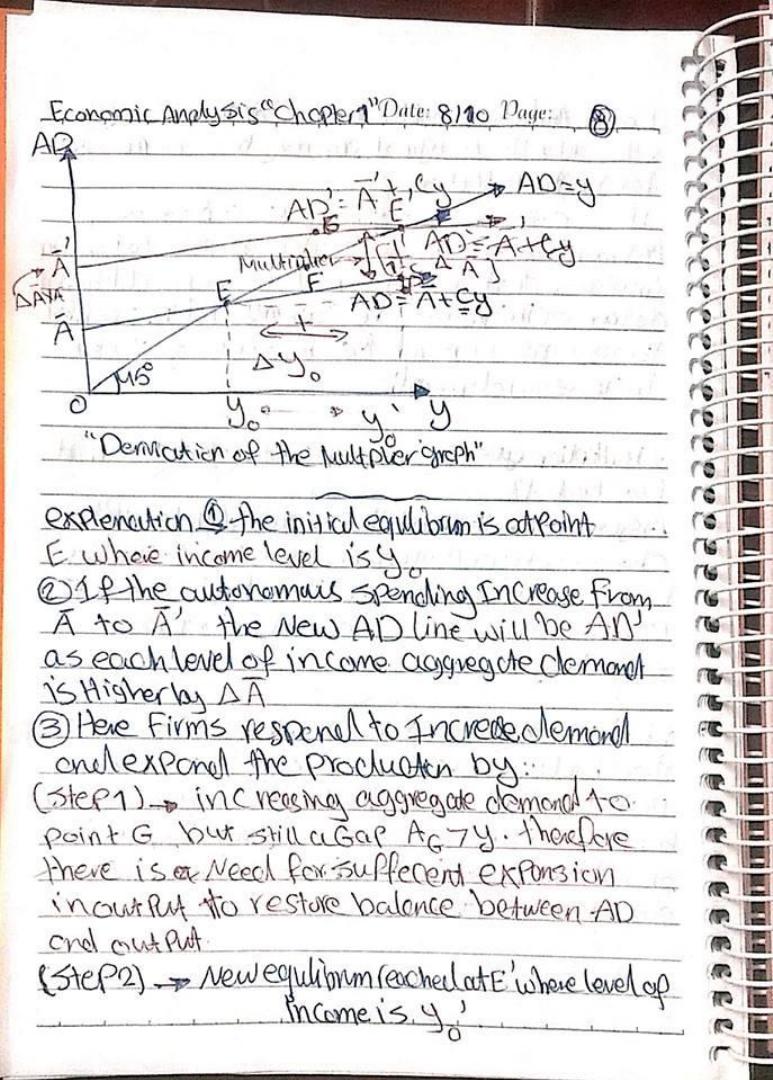 Economic Analysis "Chapter 1" Date: 8/10 Page: 8
AD
AD' = Ā' + Cy
AD=y
E'
G
Ā'
Multiplier
AD' = Ā' + Cy
ΔĀ
ΔĀ
E
F
AD = Ā + Cy
Ā
+
Δy₀
45°
O
y₀
y₀'
y
"Derivation of the Multiplier graph"
explenation ① the initial equlibrum is at point
E where income level is y₀
② If the autonomuis spending Increase from
Ā to Ā' the New AD line will be AD'
as each level of income aggregate demand
is Higher by ΔĀ
③ Here Firms respond to Increase demand
and expand the production by:
(Step1) → increasing aggregate demand to
point G but still a Gap AG>y. therefore
there is a Need for suffecent expansion
in output to restore balance between AD
and output.
(Step2) → New equlibrum reached at E' where level of
income is y₀'